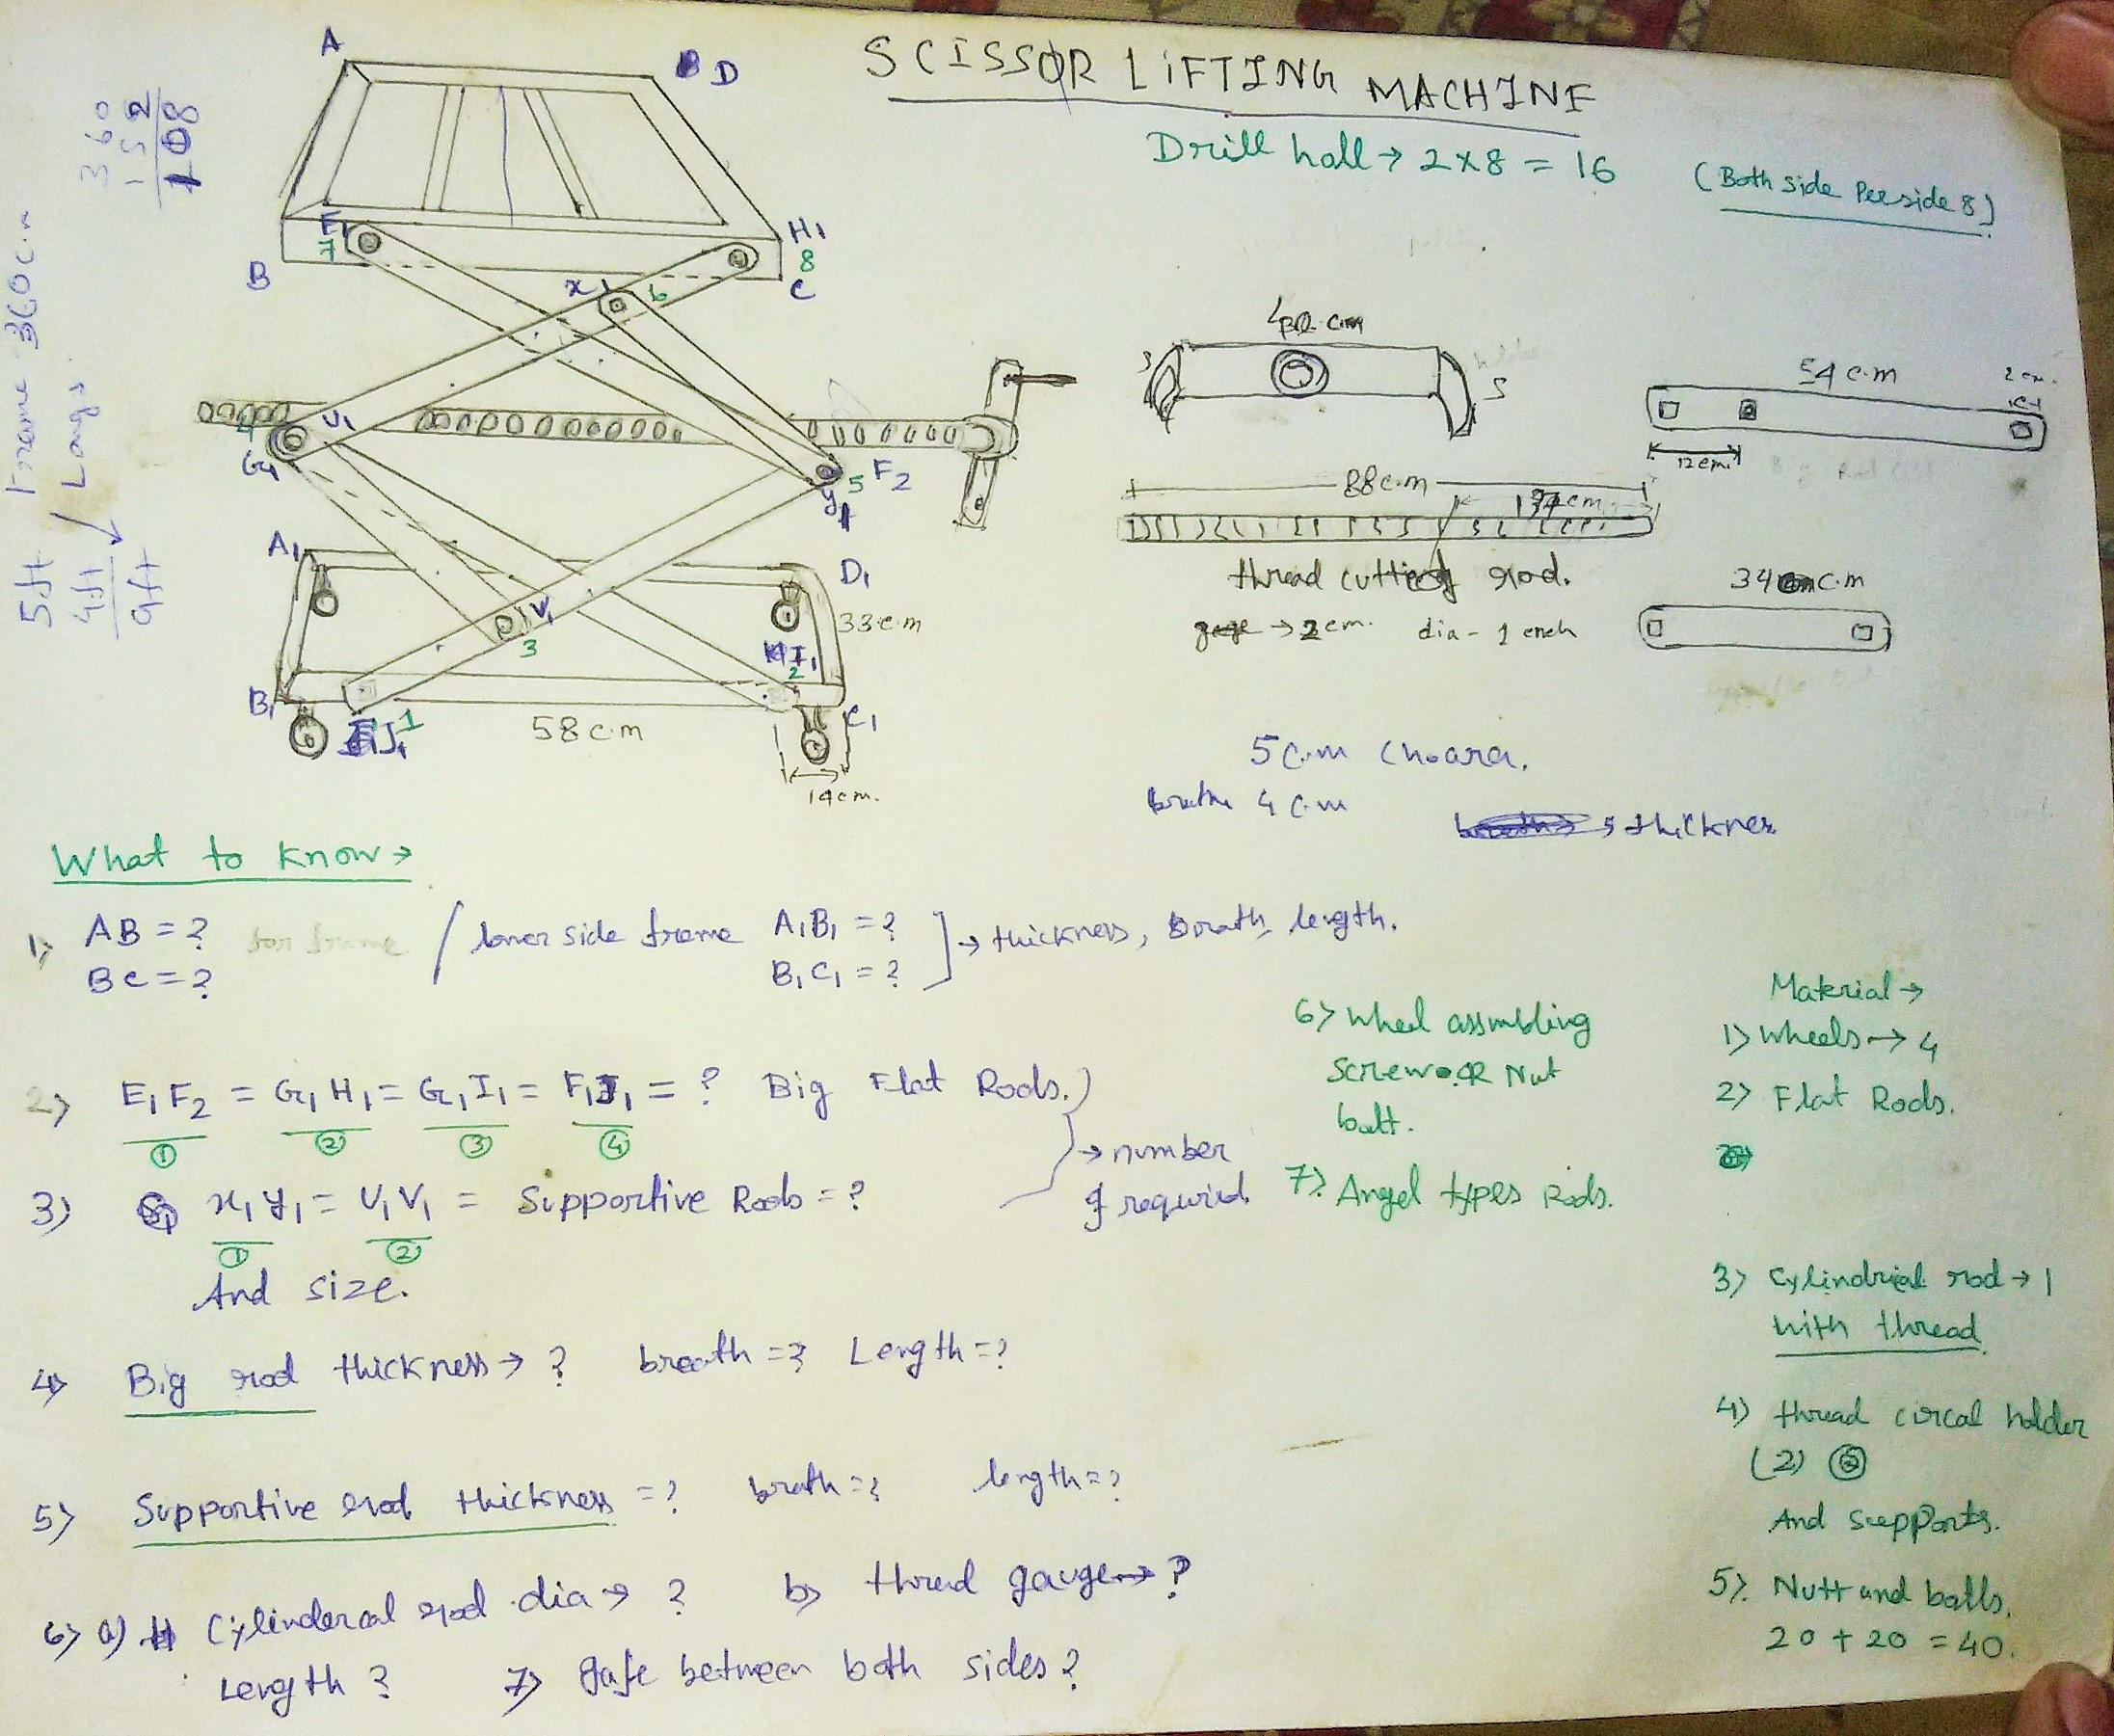 SCISSOR LIFTING MACHINE
Drill hall → 2×8 = 16 (Both side Perside 8)
A
D
360
152
108
Frame 360cm
Long
5ft
4ft
9ft
E1
7
H1
8
B
C
x1
6
G1
4
U1
5
F2
y1
A1
D1
33cm
V1
3
I1
2
B1
J1
1
C1
58cm
14cm.
cm
S
54cm
2cm.
12cm.
88cm
thread cutting rod.
gage → 2cm. dia - 1 ench
34 cm
5cm choara.
brath 4cm
thicknes
What to know →
1) AB = ? for frame / lower side frame A1B1 = ? ] → thickness, Brath, length.
BC = ? B1C1 = ?
2) E1F2 = G1H1 = G1I1 = F1J1 = ? Big Flat Rods.
① ② ③ ④
→ number
of required.
3) x1y1 = U1V1 = Supportive Rods = ?
① ②
And size.
4) Big rod thickness → ? breath = ? Length = ?
5) Supportive rod thickness = ? brath = ? length = ?
6) a) Cylindercal rod dia → ? b) thread gauge → ?
Length ? 7) gafe between both sides ?
6) Wheel assmbling
Screw OR Nut
bolt.
7). Angel types Rods.
Material →
1) Wheels → 4
2) Flat Rods.
3) Cylindrical rod → 1
with thread
4) thread circal holder
(2)
And supports.
5). Nutt and bolls.
20 + 20 = 40.